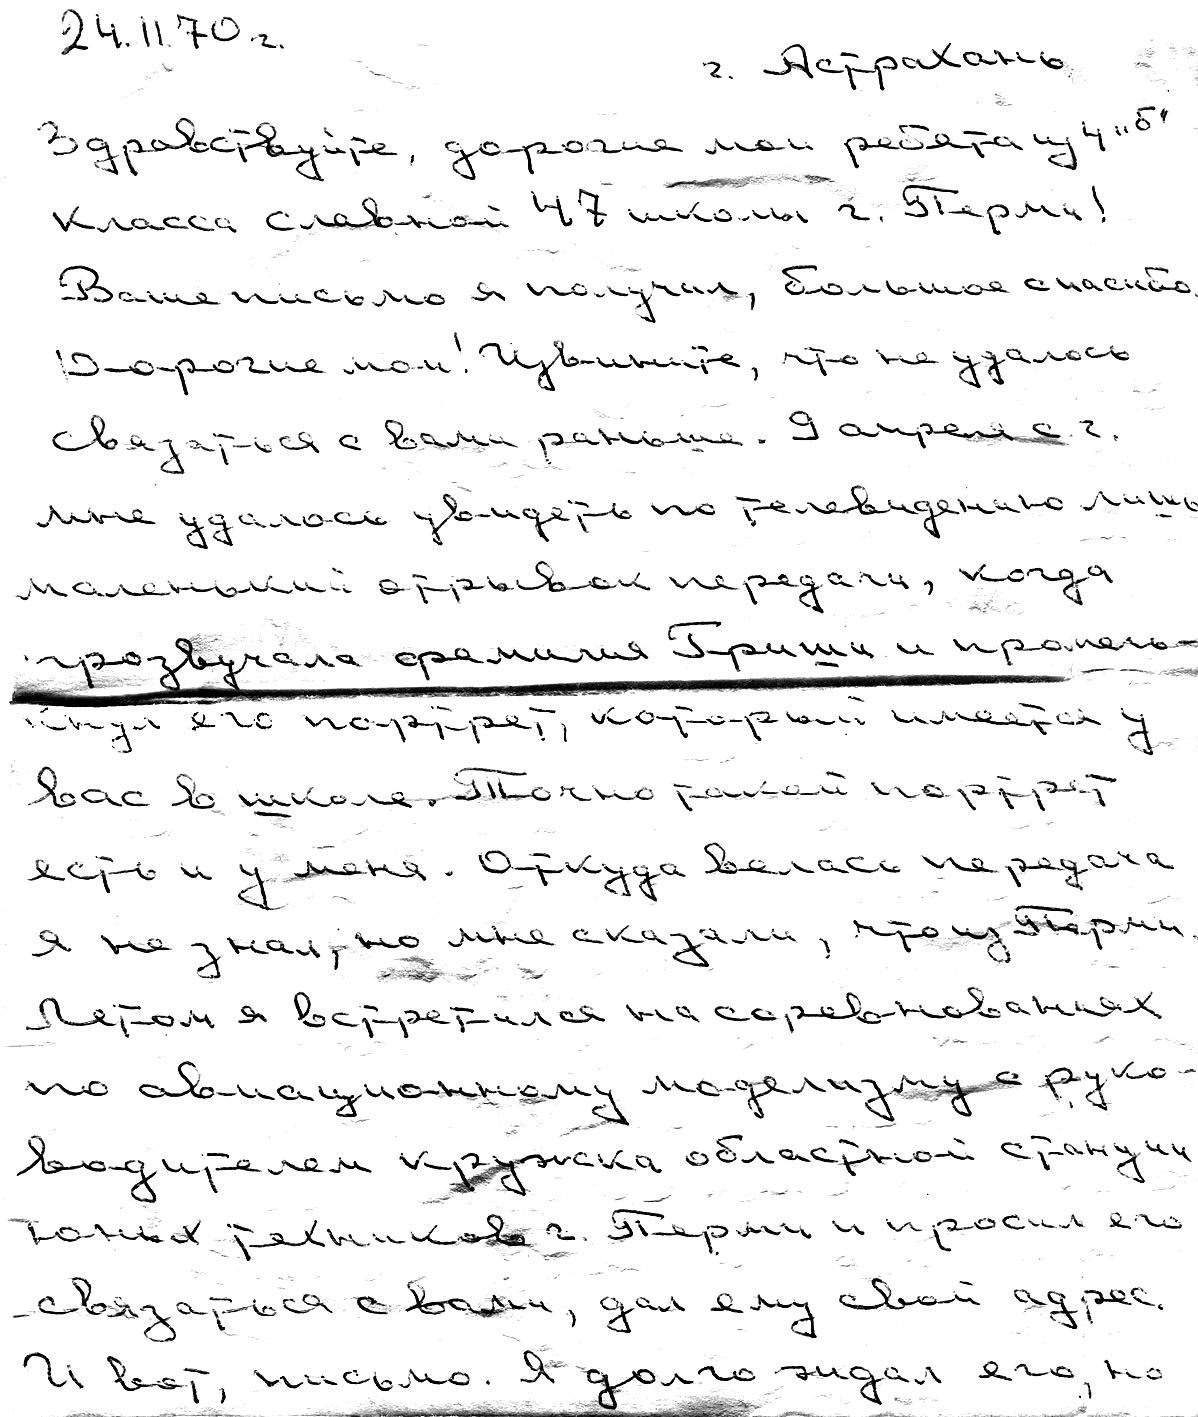 24.II.70 г.
г. Астрахань
Здравствуйте, дорогие мои ребята из 4 "б"
класса славной 47 школы г. Перми!
Ваше письмо я получил, большое спасибо.
Дорогие мои! Извините, что не удалось
связаться с вами раньше. 9 апреля с.г.
мне удалось увидеть по телевидению лишь
маленький отрывок передачи, когда
прозвучала фамилия Гриши и промель-
кнул его портрет, который имеется у
вас в школе. Точно такой портрет
есть и у меня. Откуда велась передача
я не знал, но мне сказали, что из Перми.
Летом я встретился на соревнованиях
по авиационному моделизму с руко-
водителем кружка областной станции
юных техников г. Перми и просил его
связаться с вами, дал ему свой адрес.
И вот, письмо. Я долго ждал его, но